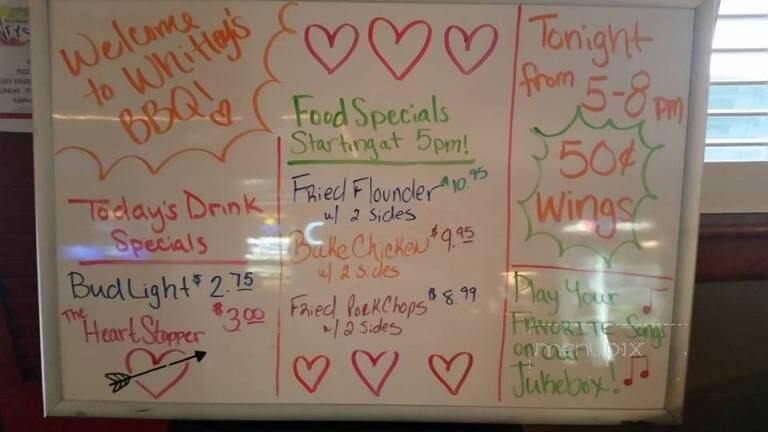 Welcome
to Whitley's
BBQ!
Today's Drink
Specials
Bud Light $2.75
The Heart Stopper $3.00
Food Specials
Starting at 5pm!
Fried Flounder $10.95
w/ 2 sides
Bake Chicken $9.95
w/ 2 sides
Fried PorkChops $8.99
w/ 2 sides
Tonight
from 5-8 pm
50¢
Wings
Play Your
FAVORITE Songs
on our
Jukebox!
menupix